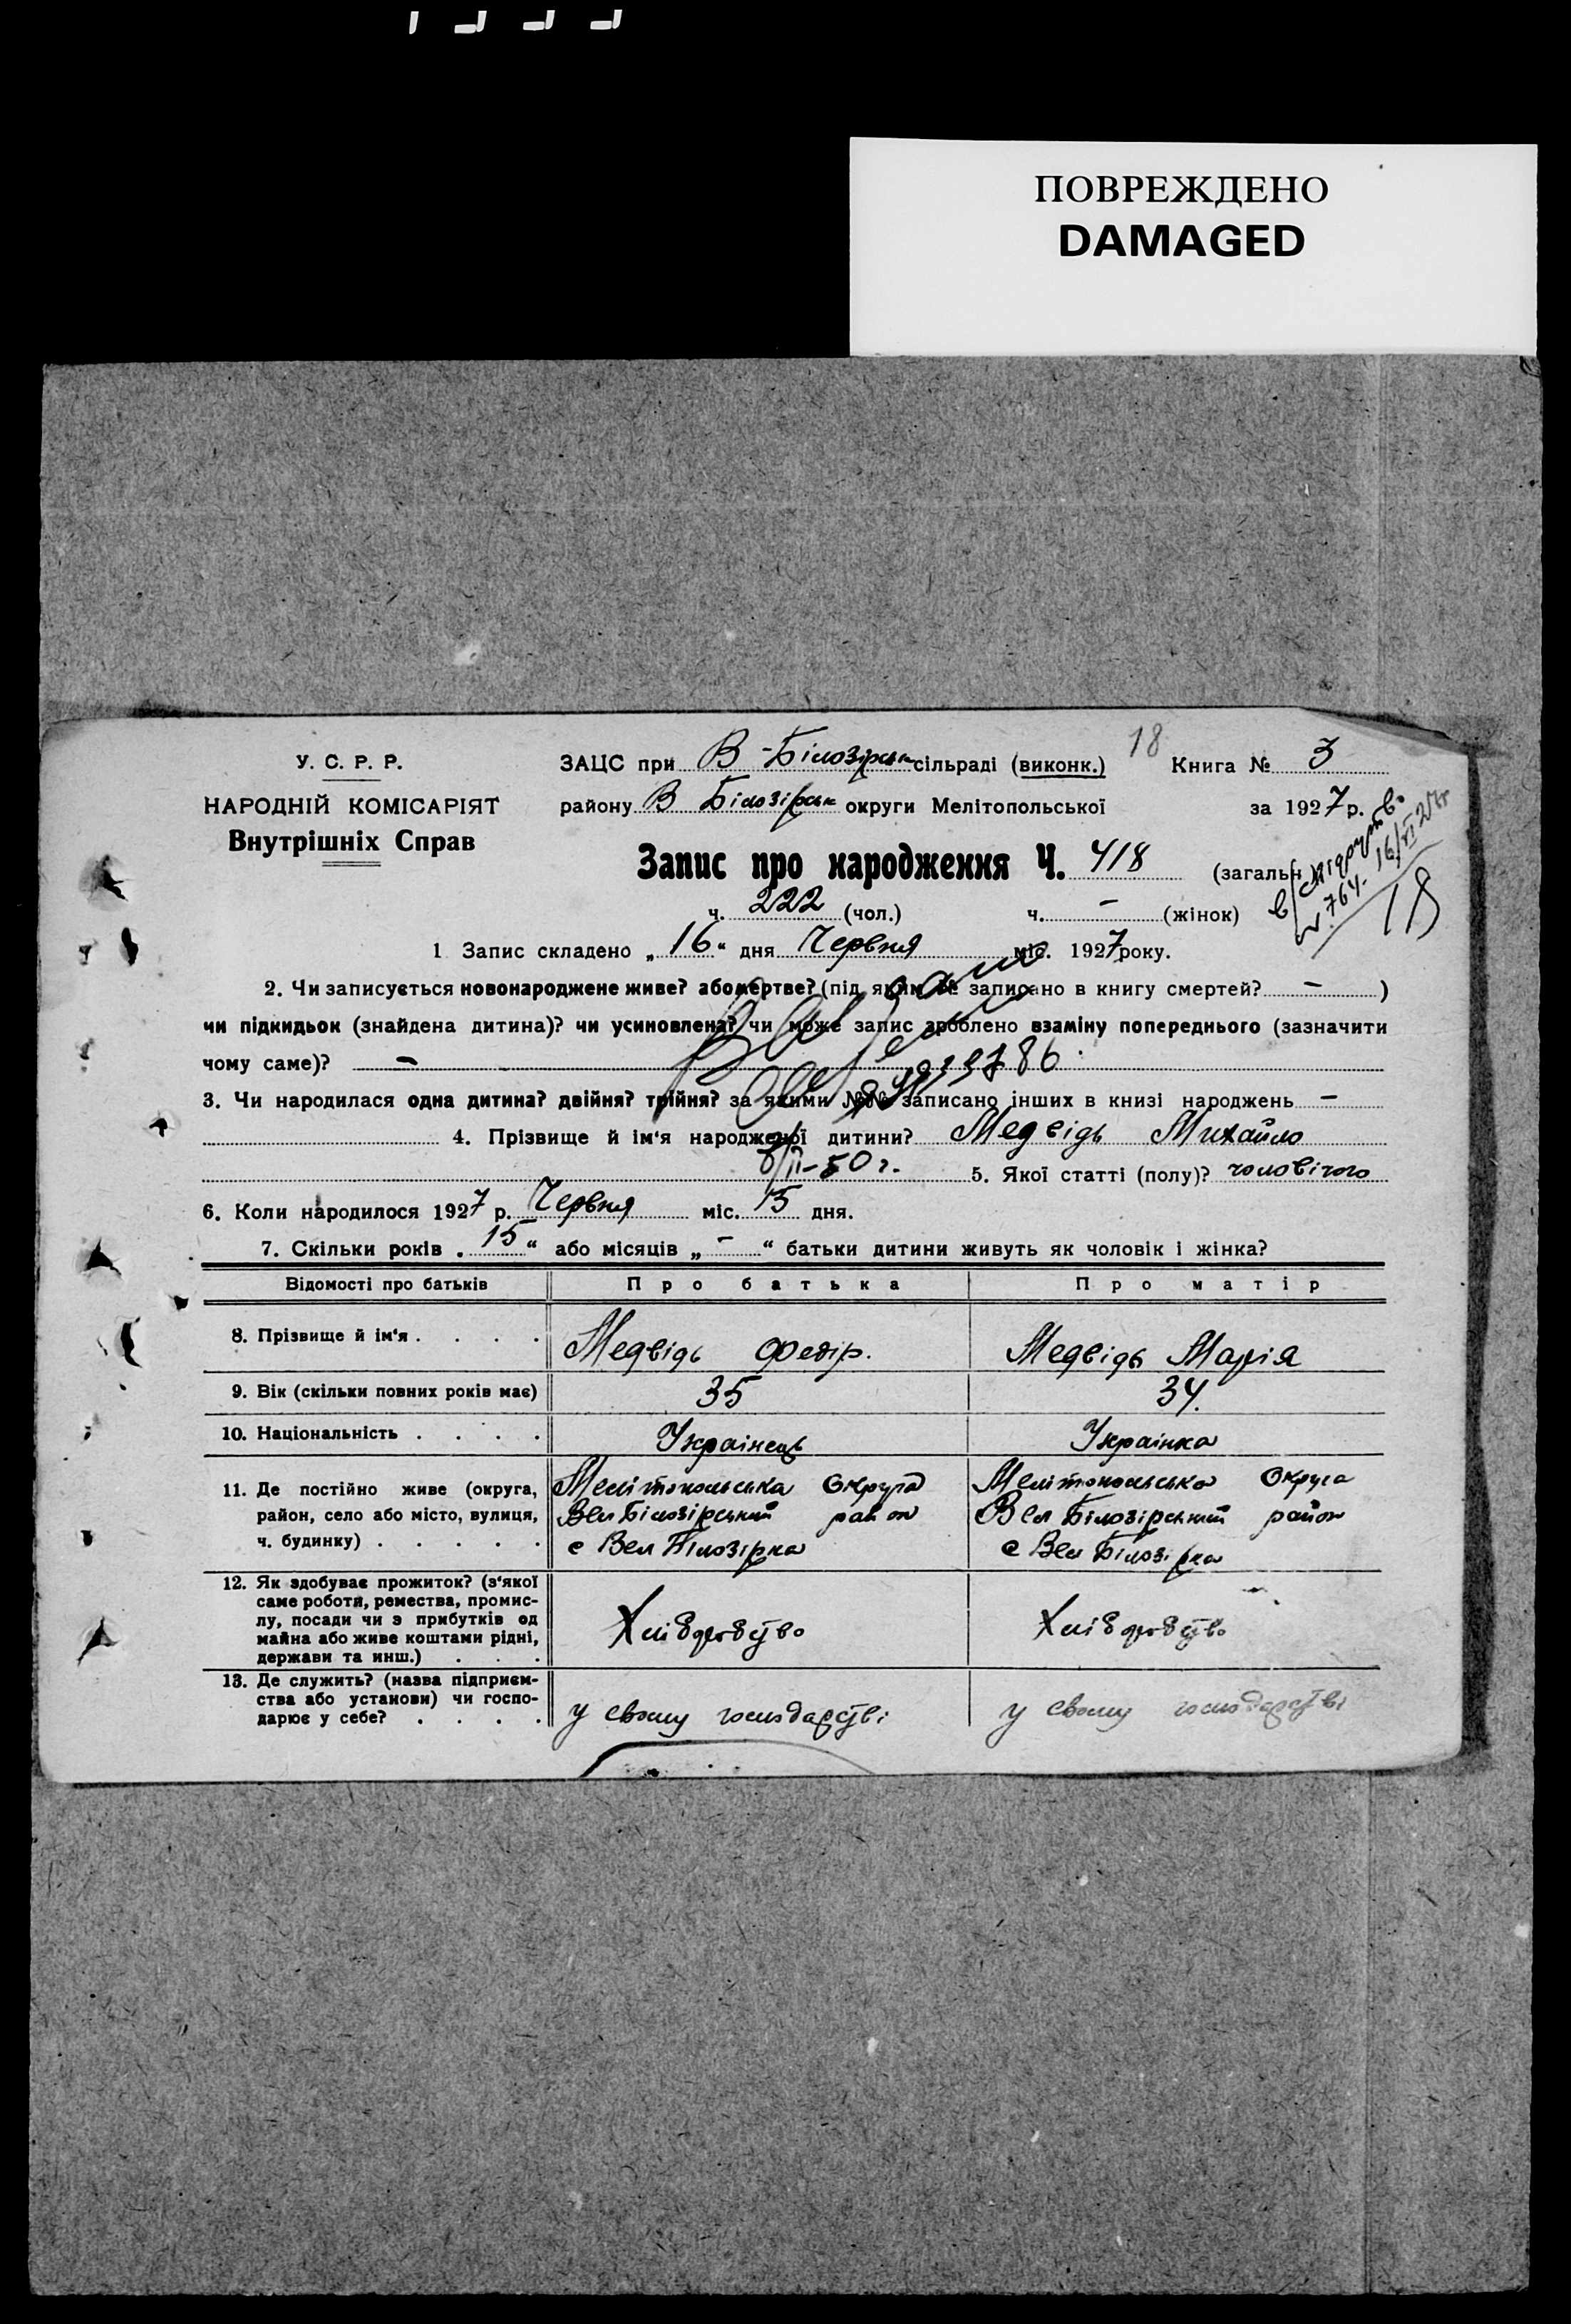 ПОВРЕЖДЕНО
DAMAGED
У. С. Р. Р.
НАРОДНІЙ КОМІСАРІЯТ
Внутрішніх Справ
ЗАЦС при В-Білозірськ сільраді (виконк.)
18
Книга № 3
району В Білозірськ округи Мелітопольської
за 1927 р.
Запис про народження Ч. 418 (загальн.)
в/с підрунтво
№ 764 - 16/VI 27г
18
ч. 222 (чол.) ч. – (жінок)
1 Запис складено „16“ дня Червня міс. 1927 року.
2. Чи записується новонароджене живе? або мертве? (під яким № записано в книгу смертей? – )
чи підкидьок (знайдена дитина)? чи усиновлена? чи може запис зроблено взаміну попереднього (зазначити
чому саме)? –
3. Чи народилася одна дитина? двійня? трійня? за якими №№ записано інших в книзі народжень –
4. Прізвище й ім'я народженої дитини? Медвідь Михайло
8/II-50 г.
5. Якої статті (полу)? чоловічого
6. Коли народилося 1927 р. Червня міс. 15 дня.
7. Скільки років „15“ або місяців „–“ батьки дитини живуть як чоловік і жінка?
Відомості про батьків Про батька Про матір
8. Прізвище й ім'я . . . . Медвідь Федір. Медвідь Марія
9. Вік (скільки повних років має) 35 34.
10. Національність . . . . Українець Українка
11. Де постійно живе (округа, Мелітопольська округа Мелітопольська Округа
район, село або місто, вулиця, Вел Білозірський район Вел Білозірський район
ч. будинку) . . . . . с Вел Білозірка с Вел Білозірка
12. Як здобуває прожиток? (з'якої
саме роботи, ремества, промис-
лу, посади чи з прибутків од Хліборобство Хліборобство
майна або живе коштами рідні,
держави та инш.) . . .
13. Де служить? (назва підприєм-
ства або установи) чи госпо-
дарює у себе? . . . . у свому господарстві у свому господарстві